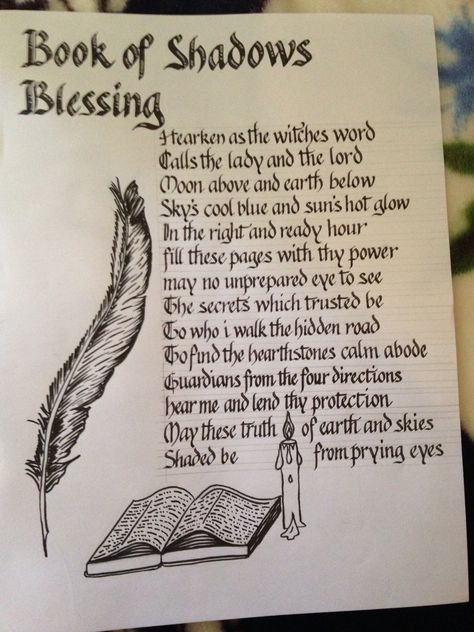 Book of Shadows
Blessing
Hearken as the witches word
Calls the lady and the lord
Moon above and earth below
Sky's cool blue and sun's hot glow
In the right and ready hour
fill these pages with thy power
may no unprepared eye to see
The secrets which trusted be
To who i walk the hidden road
To find the hearthstones calm abode
Guardians from the four directions
hear me and lend thy protection
May these truth of earth and skies
Shaded be from prying eyes